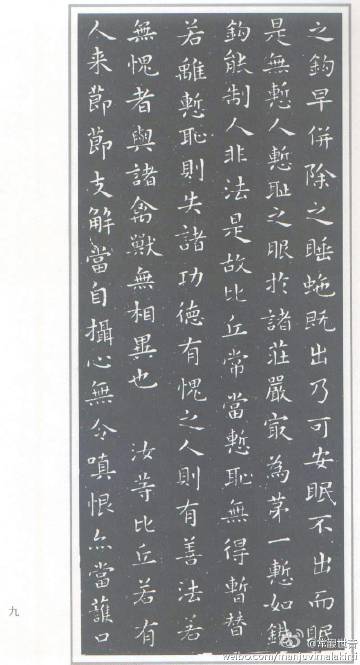 之鉤早併除之睡虵既出乃可安眠不出而眠
是無慙人慙耻之服於諸莊嚴㝡為第一慙如鐵
鉤能制人非法是故比丘常當慙恥無得暫替
若離慙恥則失諸功德有愧之人則有善法若
無愧者與諸禽獸無相異也 汝等比丘若有
人来莭莭支解當自攝心無令嗔恨亦當護口
九
weibo.com/manjuvimalakirti